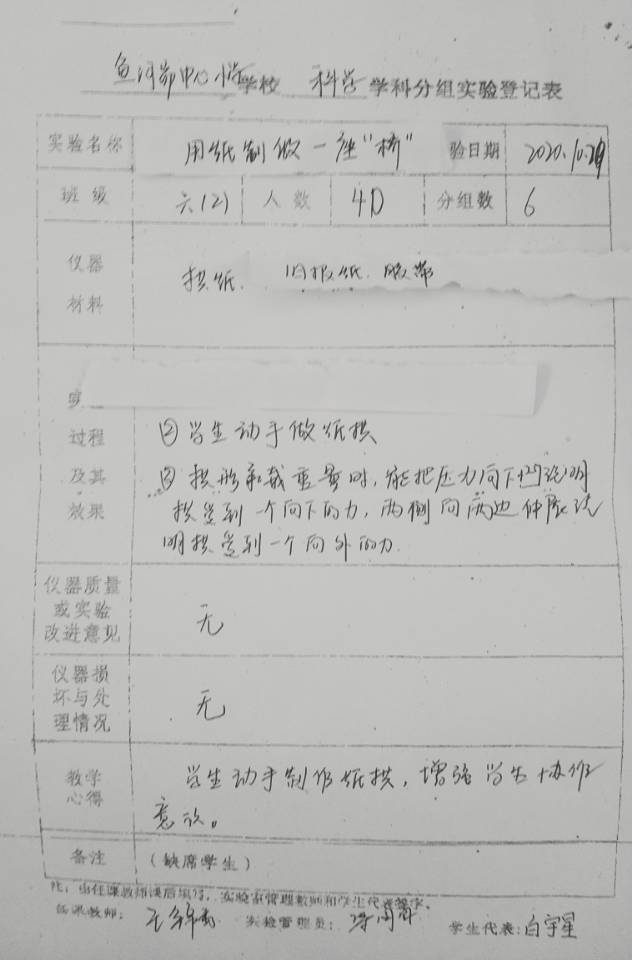 鱼河峁中心小学学校 科学 学科分组实验登记表
实验名称 用纸制做一座“桥” 验日期 2020.10.29
班级 六(2) 人数 40 分组数 6
仪器材料 拱纸. 旧报纸. 胶带
过程及其效果
② 学生动手做纸拱
③ 拱形承载重量时,能把压力向下凹说明
拱受到一个向下的力,两侧向两边伸展说
明拱受到一个向外的力.
仪器质量或实验改进意见 无
仪器损坏与处理情况 无
教学心得 学生动手制作纸拱,增强学生协作
意识。
备注 (缺席学生)
注:由任课教师课后填写,实验室管理教师和学生代表签字。
任课教师: 实验管理员: 学生代表:白宇星